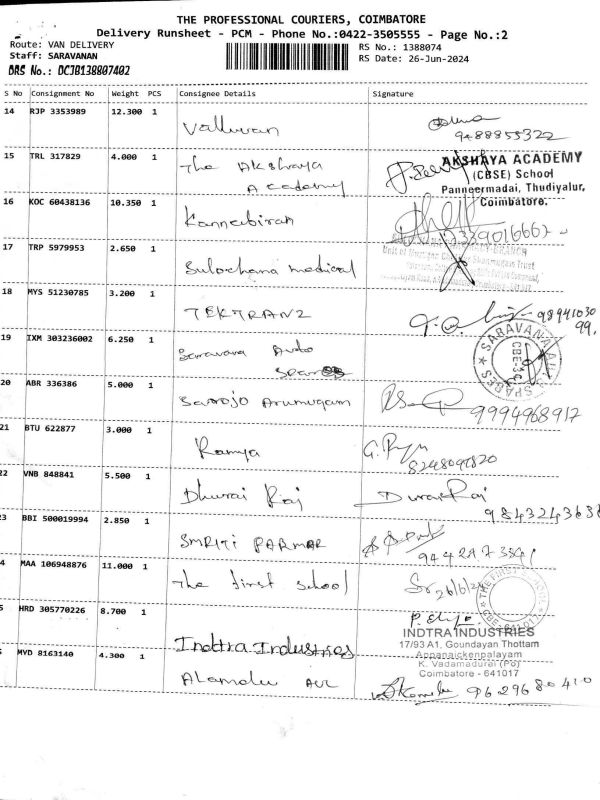 THE PROFESSIONAL COURIERS, COIMBATORE
Delivery Runsheet - PCM - Phone No.:0422-3505555 - Page No.:2
Route: VAN DELIVERY
RS No.: 1388074
Staff: SARAVANAN
RS Date: 26-Jun-2024
DRS No.: DCJB138807402
S No Consignment No Weight PCS Consignee Details Signature
14 RJP 3353989 12.300 1 Valluvan
9488855322
15 TRL 317829 4.000 1 The Akshaya
Academy
AKSHAYA ACADEMY
(CBSE) School
Panneermadai, Thudiyalur,
Coimbatore.
16 KOC 60438136 10.350 1 Kannabiran
17 TRP 5979953 2.650 1 Sulochana medical
18 MYS 51230785 3.200 1 TEKTRANZ
98941030
99.
19 IXM 303236002 6.250 1 Saravana Auto
SARAVANA
SPARES
20 ABR 336386 5.000 1 Sarojo Arumugam
9994968917
21 BTU 622877 3.000 1 Ramya
22 VNB 848841 5.500 1 Dhurai Raj
Durai Raj
3 BBI 500019994 2.850 1 SMRITI PARMAR
4 MAA 106948876 11.000 1 The first school
26/6/24
THE FIRST SCHOOL
5 HRD 305770226 8.700 1 Indtra Industries
INDTRA INDUSTRIES
17/93 A1, Goundayan Thottam
Appanaickenpalayam
K. Vadamadurai (Po)
Coimbatore - 641017
MVD 8163140 4.300 1 Alamelu
9629680410